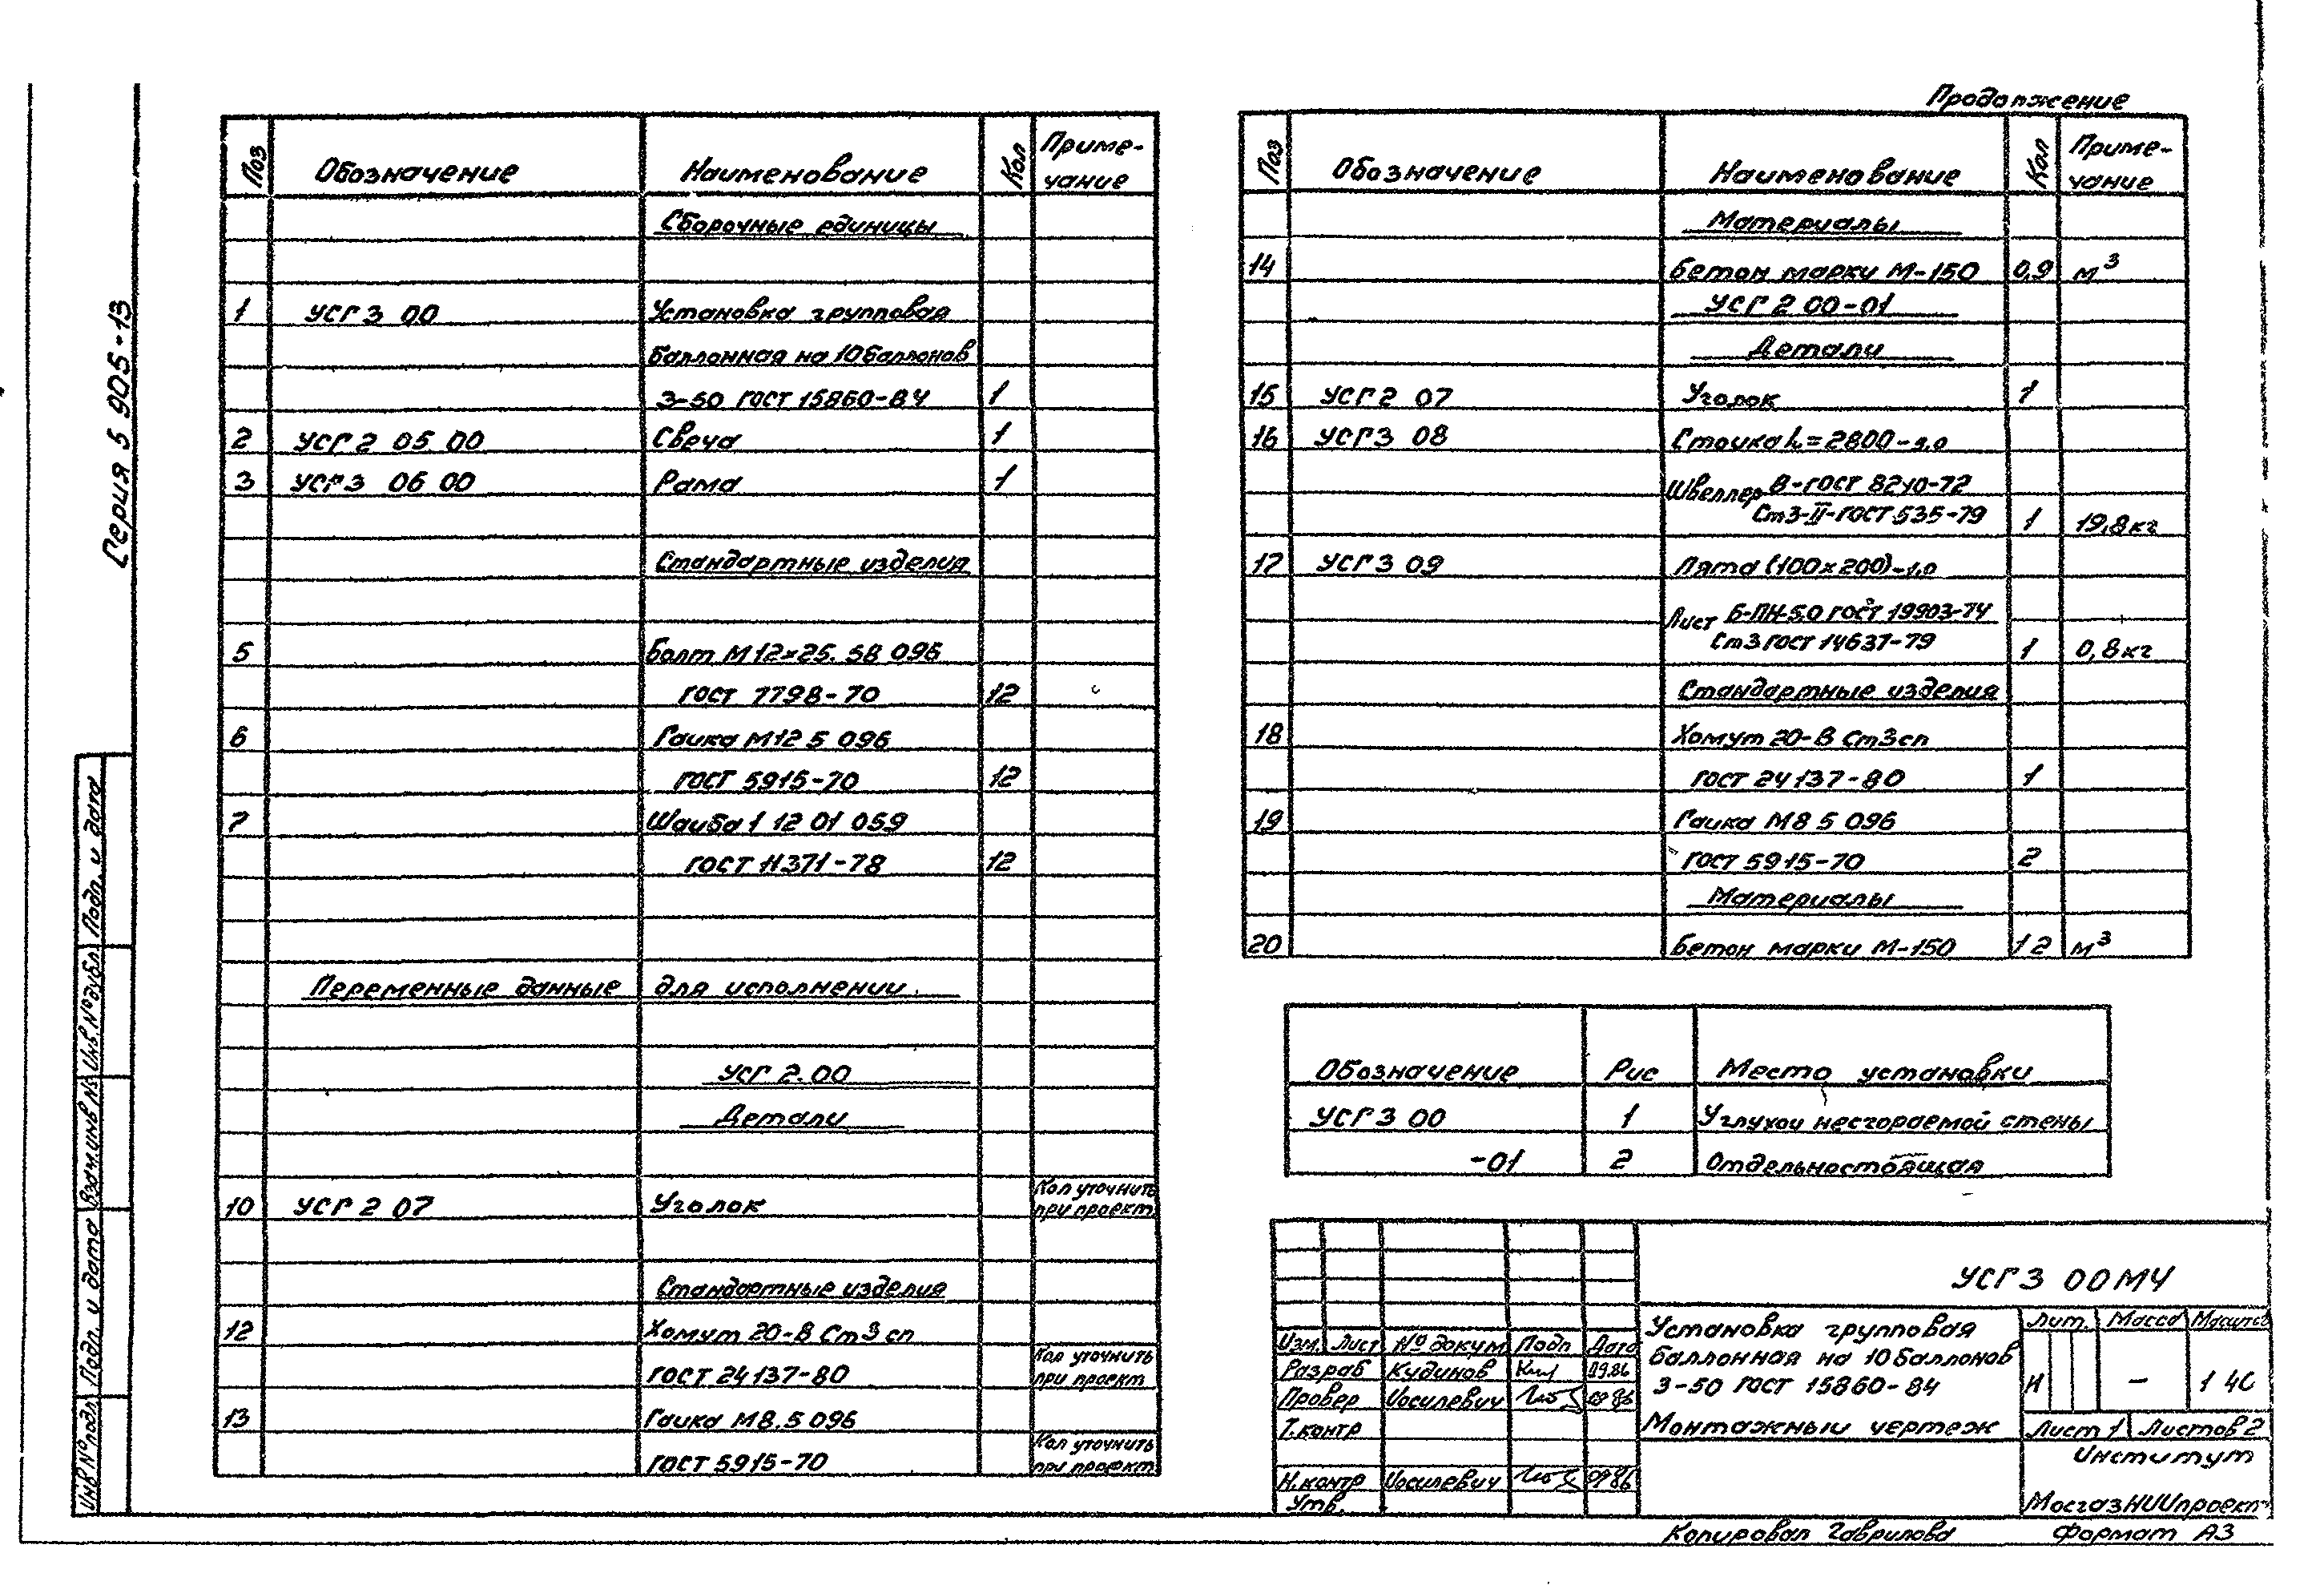 Серия 5 905-13
Поз Обозначение Наименование Кол Приме-
чание
Сборочные единицы
1 УСГ 3 00 Установка групповая
баллонная на 10 баллонов
3-50 ГОСТ 15860-84 1
2 УСГ 2 05 00 Свеча 1
3 УСГ 3 06 00 Рама 1
Стандартные изделия
5 Болт М12×25. 58 096
ГОСТ 7798-70 12
6 Гайка М12 5 096
ГОСТ 5915-70 12
7 Шайба 1 12 01 059
ГОСТ 11371-78 12
Переменные данные для исполнении
УСГ 2.00
Детали
10 УСГ 2 07 Уголок Кол уточнить
при проект.
Стандартные изделия
12 Хомут 20-В Ст3 сп
ГОСТ 24137-80 Кол уточнить
при проект
13 Гайка М8.5 096
ГОСТ 5915-70 Кол уточнить
при проект.
Продолжение
Поз Обозначение Наименование Кол Приме-
чание
Материалы
14 Бетон марки М-150 0,9 м³
УСГ 2 00-01
Детали
15 УСГ 2 07 Уголок 1
16 УСГ 3 08 Стойка h=2800-1,0
Швеллер 8-ГОСТ 8240-72
Ст3-II-ГОСТ 535-79 1 19,8 кг
17 УСГ 3 09 Пята (100×200)-1,0
Лист Б-ПН-5,0 ГОСТ 19903-74
Ст3 ГОСТ 14637-79 1 0,8 кг
Стандартные изделия
18 Хомут 20-В Ст3сп
ГОСТ 24137-80 1
19 Гайка М8 5 096
ГОСТ 5915-70 2
Материалы
20 Бетон марки М-150 1 2 м³
Обозначение Рис Место установки
УСГ 3 00 1 У глухой несгораемой стены
-01 2 Отдельностоящая
УСГ 3 00МЧ
Установка групповая
баллонная на 10 баллонов
3-50 ГОСТ 15860-84
Монтажный чертеж
Лит. Масса Масштаб
И - 1 40
Лист 1 Листов 2
Институт
МосгазНИИпроект
Изм. Лист № докум Подп Дата
Разраб Кудинов 09.86
Провер Иосилевич 09 86
Т.контр
Н.контр Иосилевич 09 86
Утв.
Копировал Гаврилова Формат А3
Подп. и дата
Инв. № дубл.
Взам инв №
Подп. и дата
Инв № подл.